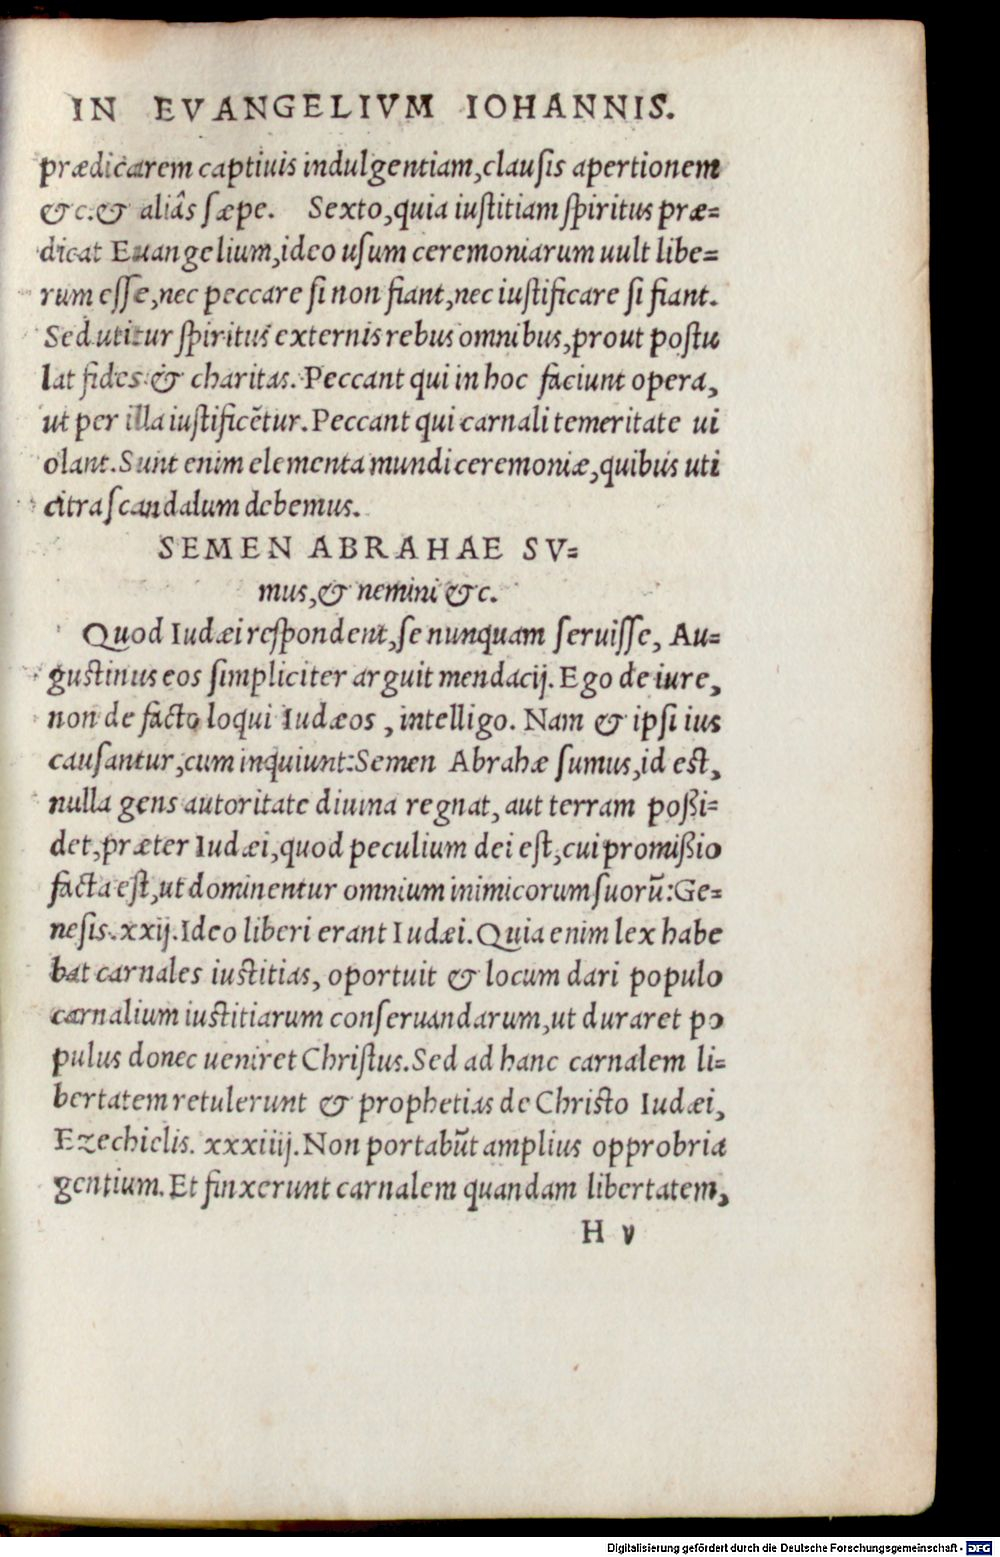 IN EVANGELIVM IOHANNIS.
prædicarem captiuis indulgentiam, clauſis apertionem
&c. & aliâs ſæpe. Sexto, quia iuſtitiam ſpiritus præ=
dicat Euangelium, ideo uſum ceremoniarum uult libe=
rum eſſe, nec peccare ſi non fiant, nec iuſtificare ſi fiant.
Sed utitur ſpiritus externis rebus omnibus, prout poſtu
lat fides & charitas. Peccant qui in hoc faciunt opera,
ut per illa iuſtificẽtur. Peccant qui carnali temeritate ui
olant. Sunt enim elementa mundi ceremoniæ, quibus uti
citra ſcandalum debemus.
SEMEN ABRAHAE SV=
mus, & nemini &c.
Quod Iudæi reſpondent, ſe nunquam ſeruiſſe, Au=
guſtinus eos ſimpliciter arguit mendacij. Ego de iure,
non de facto loqui Iudæos, intelligo. Nam & ipſi ius
cauſantur, cum inquiunt: Semen Abrahæ ſumus, id eſt,
nulla gens autoritate diuina regnat, aut terram poßi=
det, præter Iudæi, quod peculium dei eſt, cui promißio
facta eſt, ut dominentur omnium inimicorum ſuorũ: Ge=
neſis. xxij. Ideo liberi erant Iudæi. Quia enim lex habe
bat carnales iuſtitias, oportuit & locum dari populo
carnalium iuſtitiarum conſeruandarum, ut duraret po
pulus donec ueniret Chriſtus. Sed ad hanc carnalem li=
bertatem retulerunt & prophetias de Chriſto Iudæi,
Ezechielis. xxxiiij. Non portabũt amplius opprobria
gentium. Et finxerunt carnalem quandam libertatem,
H v
Digitalisierung gefördert durch die Deutsche Forschungsgemeinschaft - DFG